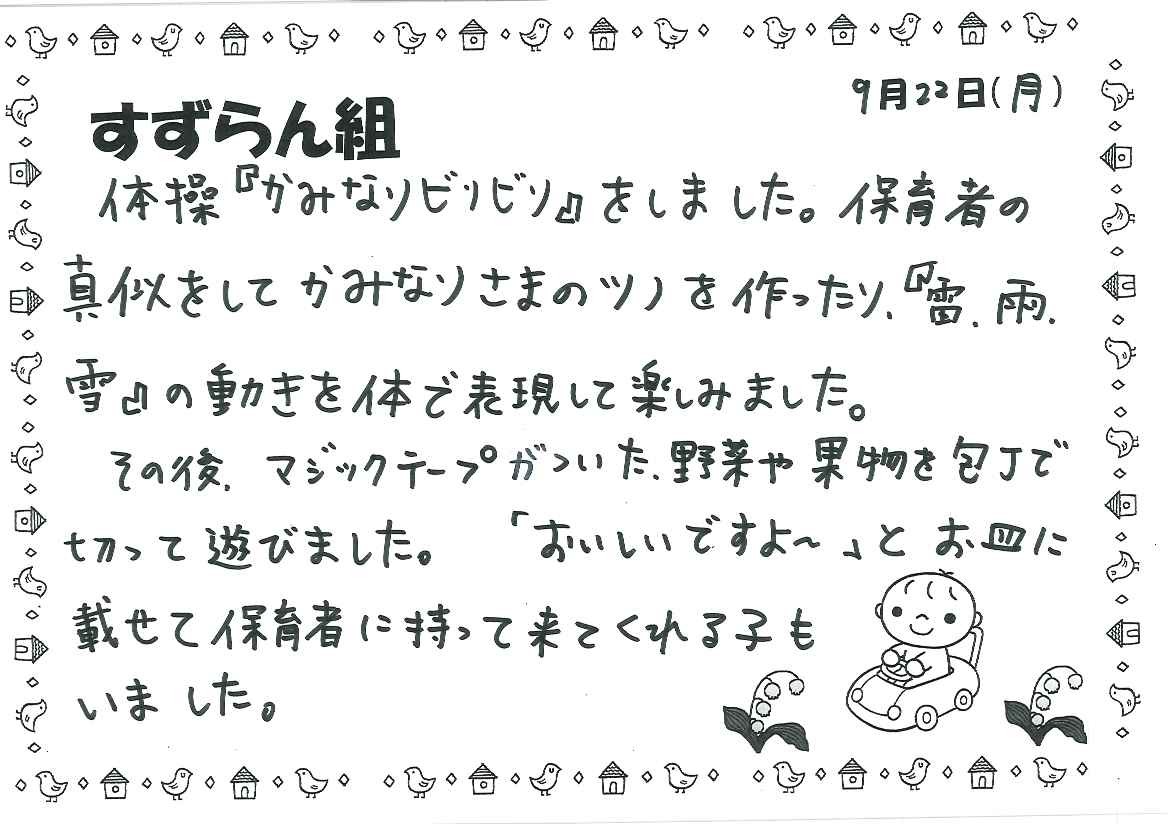 9月22日(月)
すずらん組
体操『かみなりビリビリ』をしました。保育者の
真似をしてかみなりさまのツノを作ったり、『雷、雨、
雪』の動きを体で表現して楽しみました。
その後、マジックテープがついた、野菜や果物を包丁で
切って遊びました。「おいしいですよ〜」とお皿に
載せて保育者に持って来てくれる子も
いました。